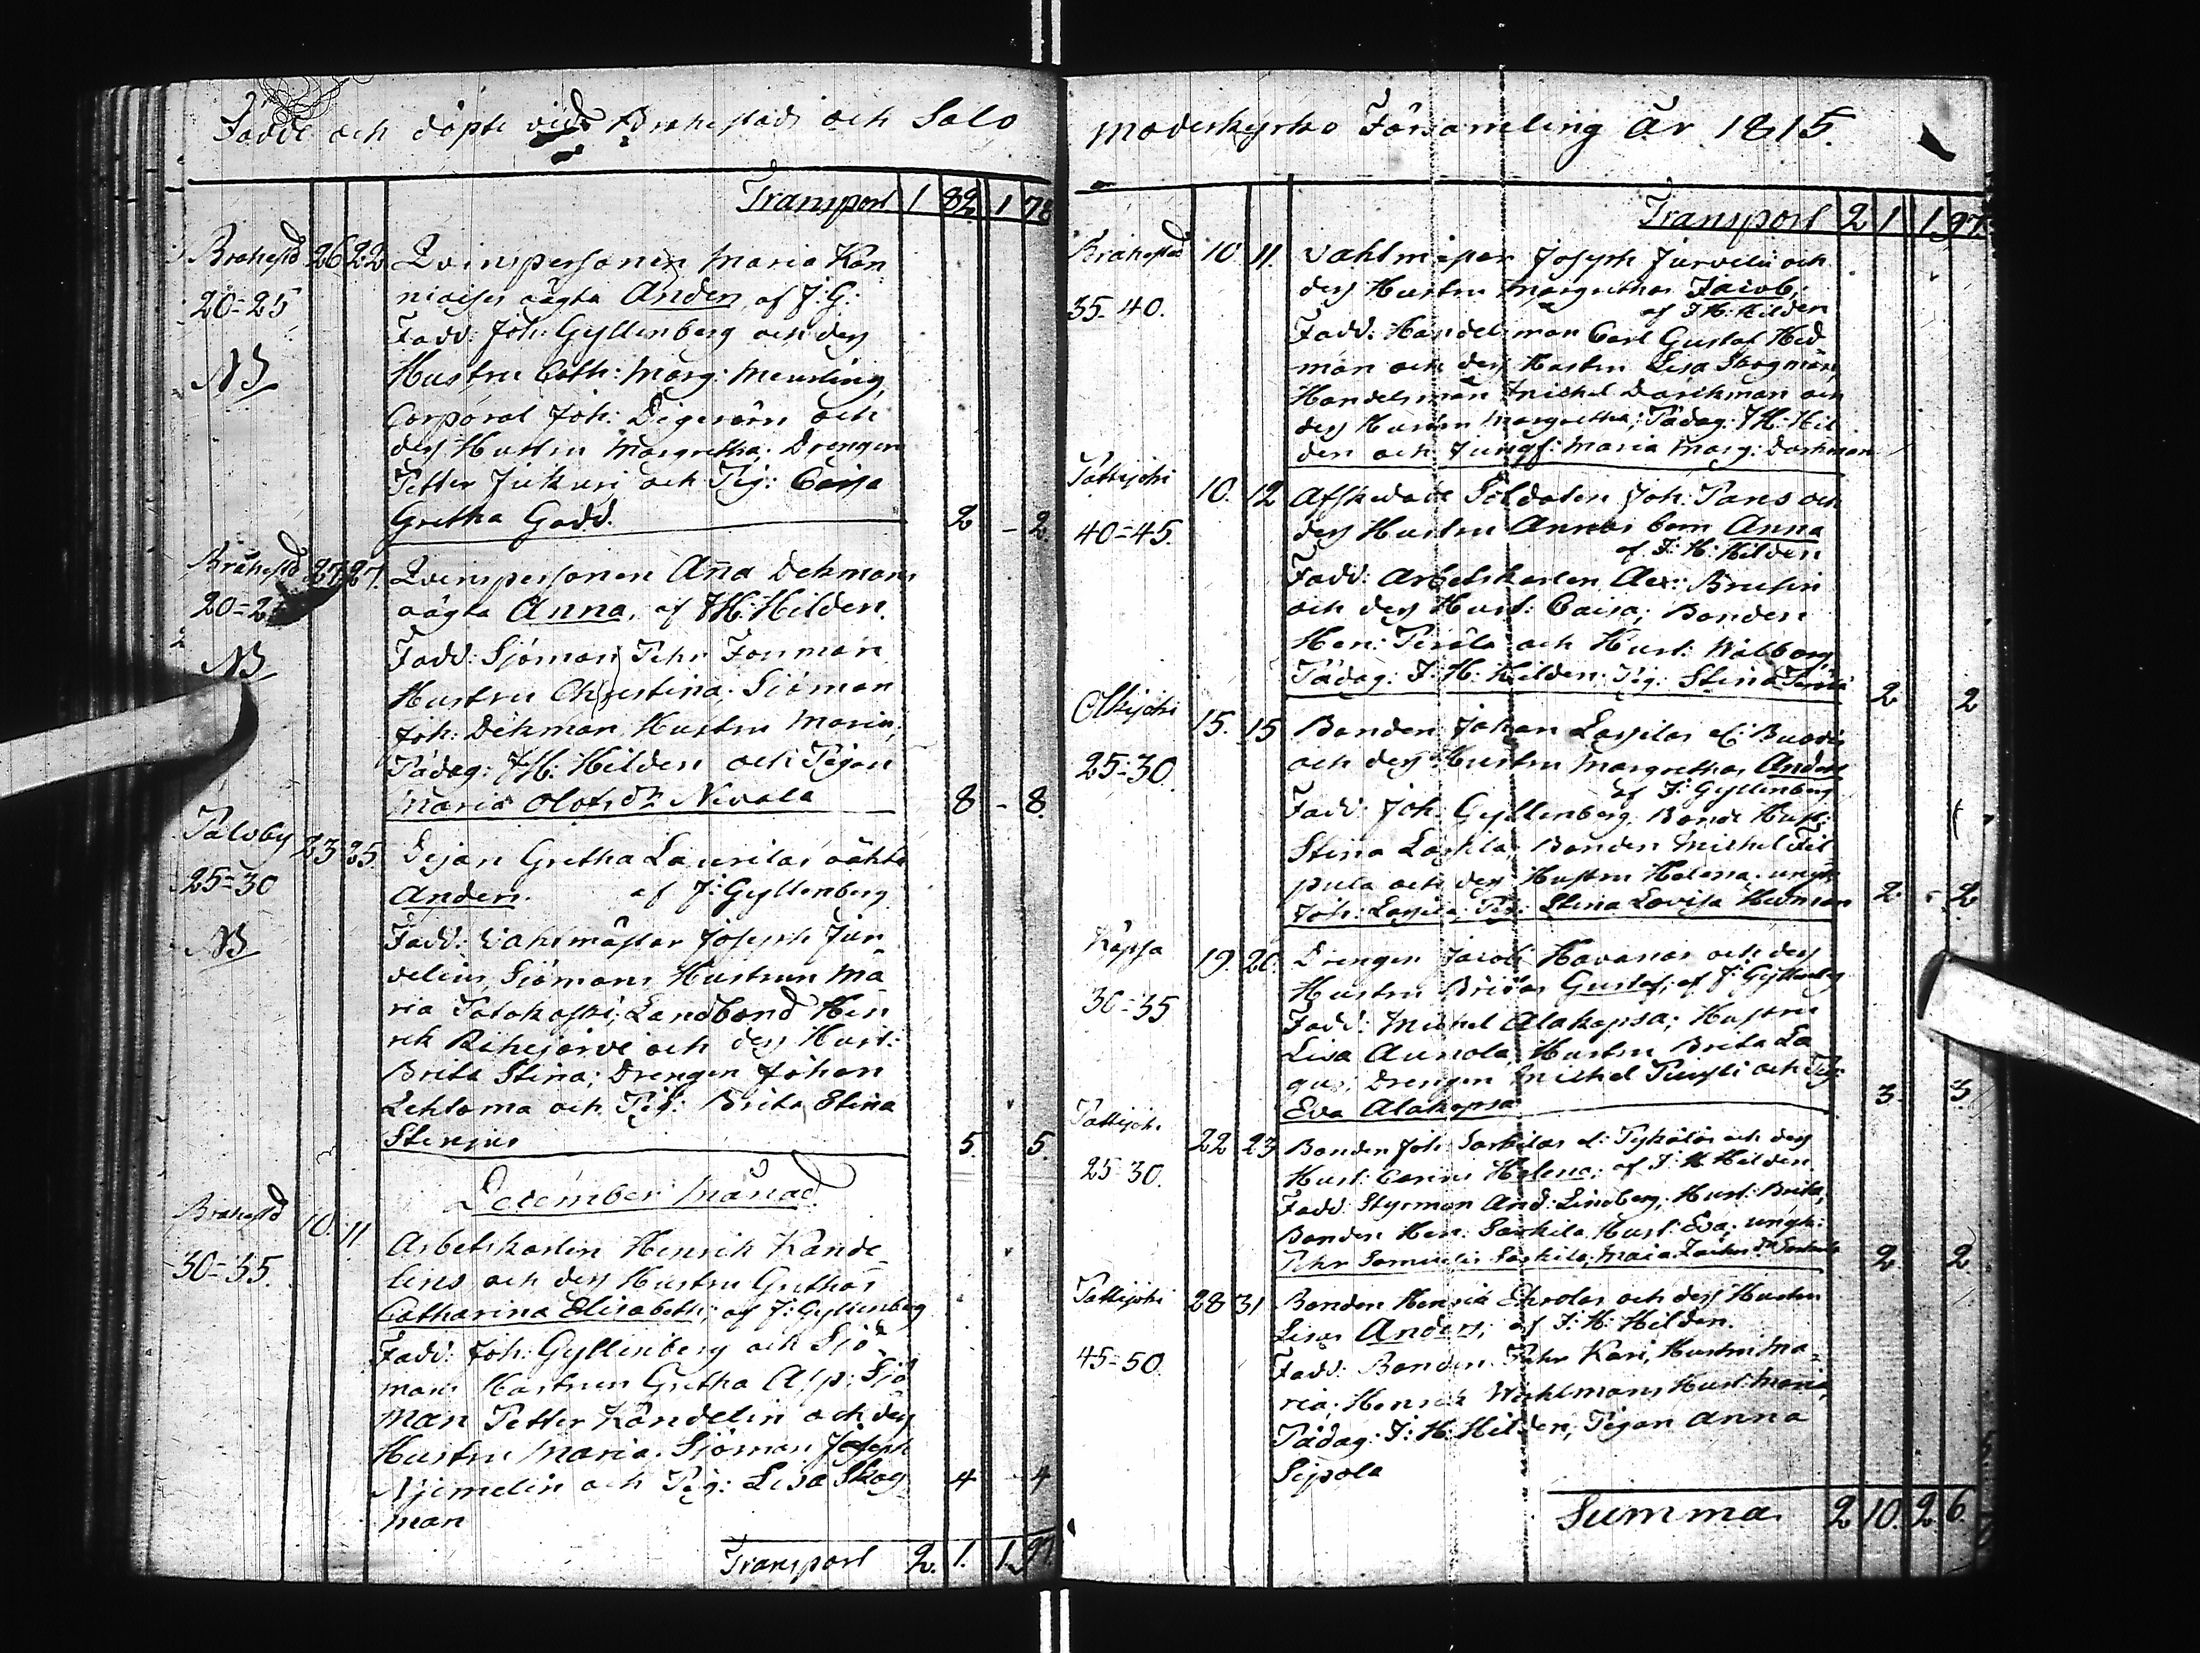 Födde och döpte vid Brahestads och Salo
Transport 1 82 1 78
Brahestd 26 22 Qvinspersonen Maria Kan
20-25 niaises oägta Anders, af J: G:
Fadd: Joh: Gyllenberg och dess
NB Hustru Cath: Marg: Meurling,
Corporal Joh: Digerörn och
dess Hustru Margretha; Drengen
Petter Jukuri och Pig: Caisa
Gretha Gadd. 2 - 2
Brahestd 27 27. Qvinspersonen Aña Dekmans
20=2 oägta Anna, af J H: Hilden.
NB Fadd: Sjöman Pehr Forsman
Hustru Christina; Sjöman
Joh: Dekman Hustru Maria;
Pädag: J H: Hilden och Pigan
Maria Olofsdr Nevala 8 - 8.
Paloby 23 25. Pigan Gretha Laurilas oäkta
25=30 Anders. af J: Gyllenberg
NB Fadd: Vahtmästar Joseph Jur
velius, Sjömans Hustrun Ma
ria Patokoski; Landbond Hen
rik Rihijärvi och dess Hust:
Brita Stina; Drengen Johan
Lehtoma och Pig: Brita Stina
Stenius 5. 5.
December Månad.
Brahestd 10. 11 Arbetskarlen Henrik Kande
30=35. lins och dess Hustru Grethas
Catharina Elisabeth; af J: Gyllenberg
Fadd: Joh: Gyllenberg och Sjö
mans Hustrun Gretha Alp; Sjö
man Petter Kandelin och dess
Hustru Maria. Sjöman Joseph
Njemelin och Pig: Lisa Skog 4 - 4
man
Transport 2. 1. 1. 97.
Moderkyrko Församling År 1815.
Transport 2 1 1 97.
Brahestad 10 11. Vahtmästar Joseph Jurvelii och
35-40. dess Hustru Margrethas Jacob;
af J H: Hilden
Fadd: Handelsman Carl Gustaf Hed
man och dess Hustru Lisa Skogman,
Handelsman Michel Darchman och
dess Hustru Margretha; Pädag: J H. Hil
den och Jungf: Maria Marg: Darhman
Pattijoki 10. 12 Afskedade Soldaten Joh: Pans och
40=45. dess Hustru Annas barn Anna
af J: H: Hilden
Fadd: Arbetskarlen Alex: Brusin
och dess Hust: Caisa; Bonden
Hen: Perälä och Hust: Walborg,
Pädag: J: H: Hilden. Pig: Stina 2 2
Olkijoki 15. 15 Bonden Johan Lassilas
25=30. och dess Hustru Margrethas Anders
af J: Gyllenberg
Fadd: Joh: Gyllenberg. Bonde Hust:
Stina Lassila; Bonden Michel Fil
pula och dess Hustru Helena. ungk:
Joh: Lassila; Pig: Stina Lovisa Hedman 2 - 2
Kåpsa 19. 20. Drengen Jacob Havanas och dess
30=35 Hustru Britas Gustaf; af J: Gyllenberg
Fadd: Michel Alakopsa; Hustru
Lisa Aunola, Hustru Brita La
gus; Drengen Michel och Pig:
Eva Alakopsa 3. 3.
Pattijoki 22 23 Bonden Joh: Sarkilas och dess
25=30. Hust: Carins Helena; af J: H Hilden
Fadd: Styrman And: Lindberg, Hust: Brita,
Bonden Hen: Sarkila, Hust: Eva; ungk:
Pehr Sarkila; Maia 2 2
Pattijoki 28 31 Bonden Henric Ehrolas och dess Hustru
45=50. Lisas Anders; af J: H: Hilden.
Fadd: Bonden Pehr Kari, Hustru Ma=
ria; Henrik Wehlmans Hust: Maria,
Pädag: J: H: Hilden, Pigan Anna
Sipola
Summa 2 10. 2 6.